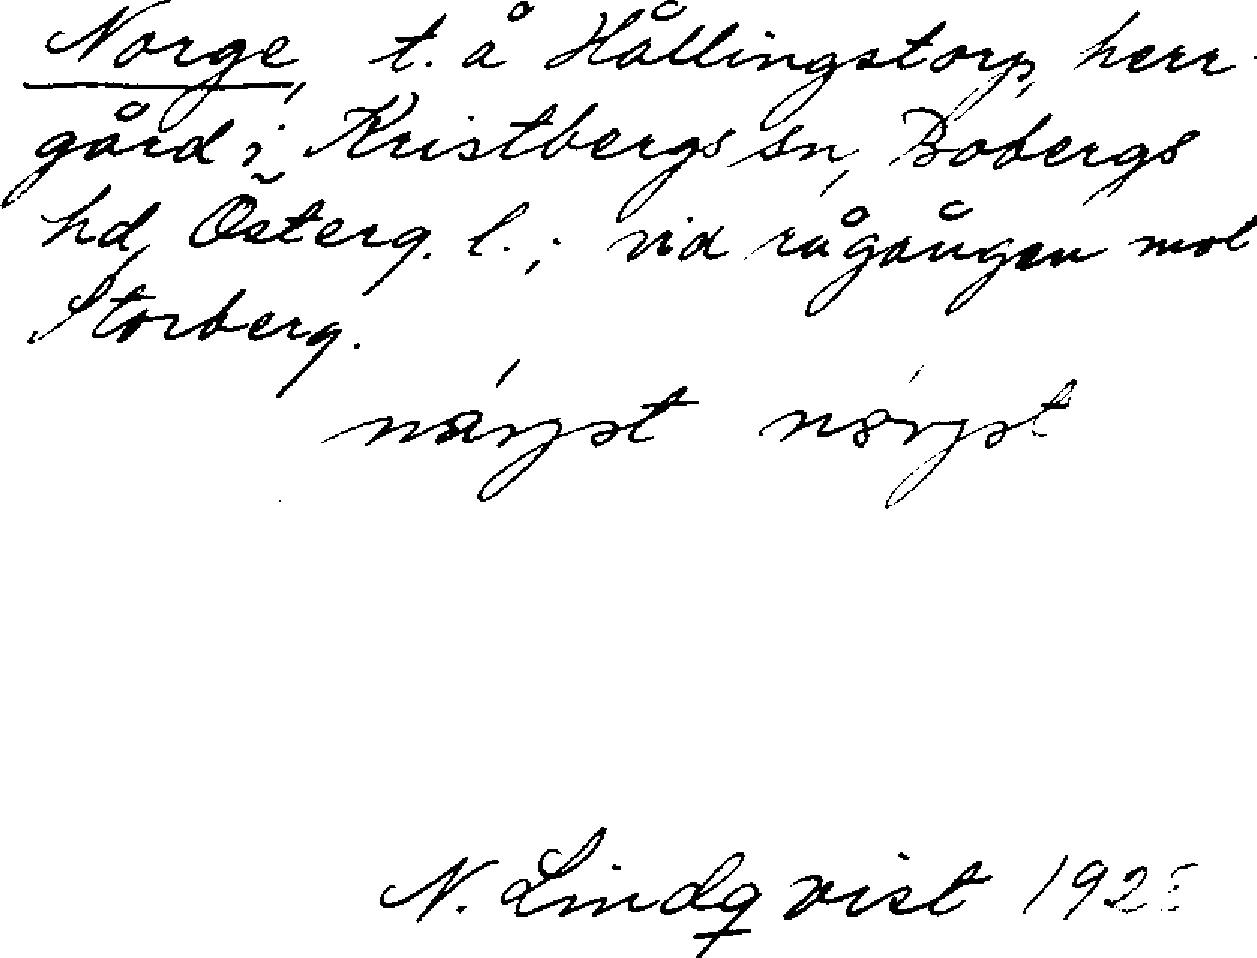 Norge, t. å Hållingstorp, herr-
gård i Kristbergs sn, Bobergs
hd, Österg. l.; vid rågången mot
Storberg.
N. Lindqvist